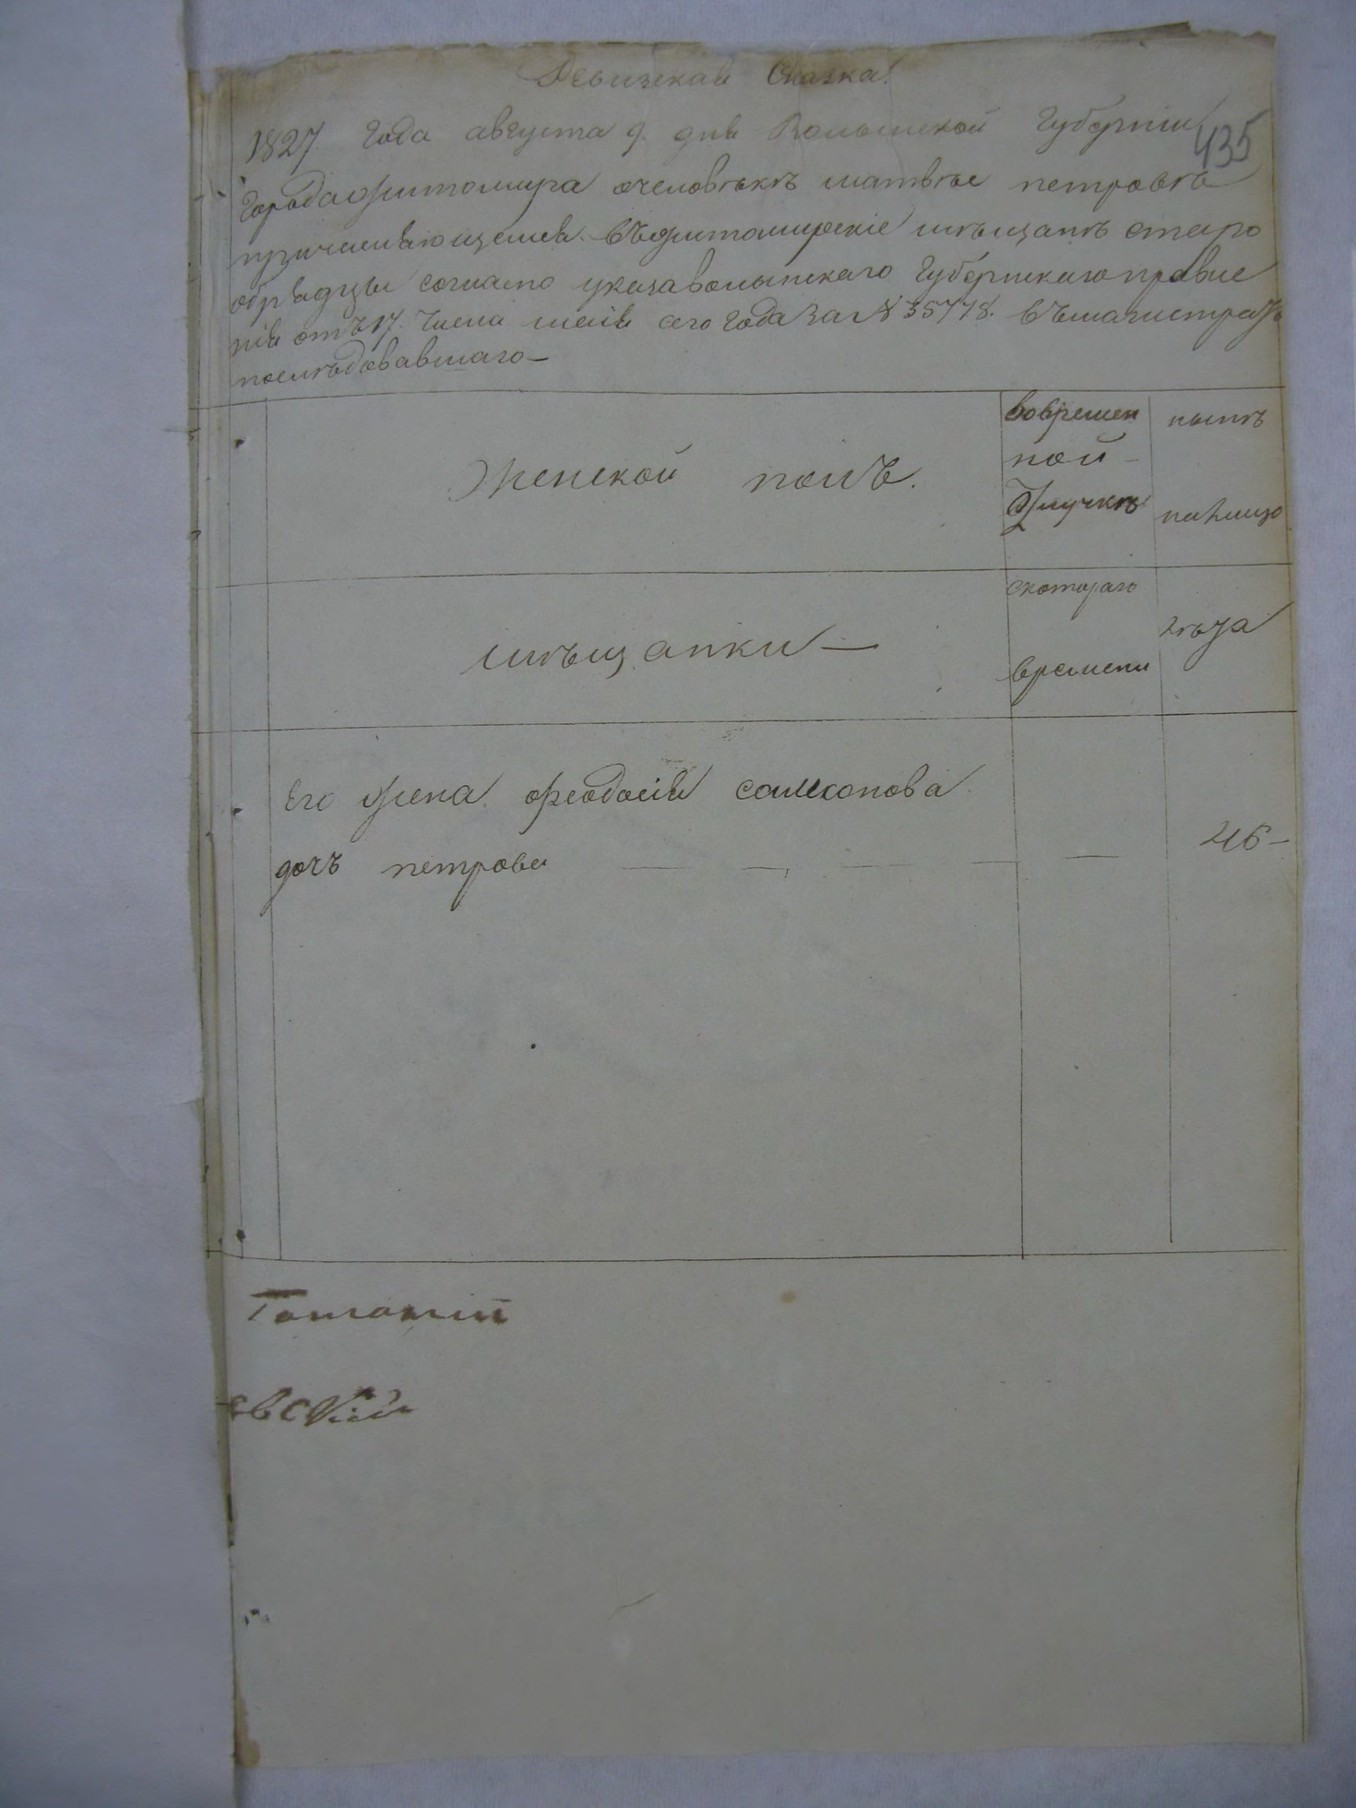 Ревизская Сказка.
1827 года августа 9. дня Волынской Губернии
435
города житомира очеловѣкѣ матвѣе петровѣ
причисляющемся въжитомирские мѣщанѣ старо
обрядцы согласно указаволынскаго Губернскаго правле
нія отъ 17. Числа маія сего года за № 35778. въмагистратъ
послѣдовавшаго —
Женской полъ.
вовремен
ной —
Отлучкѣ
нынѣ
налицо
мѣщанки —
скотораго
времени
лѣта
Его жена феодосія самсонова
дочъ петрова — — — — —
46 —
евскій